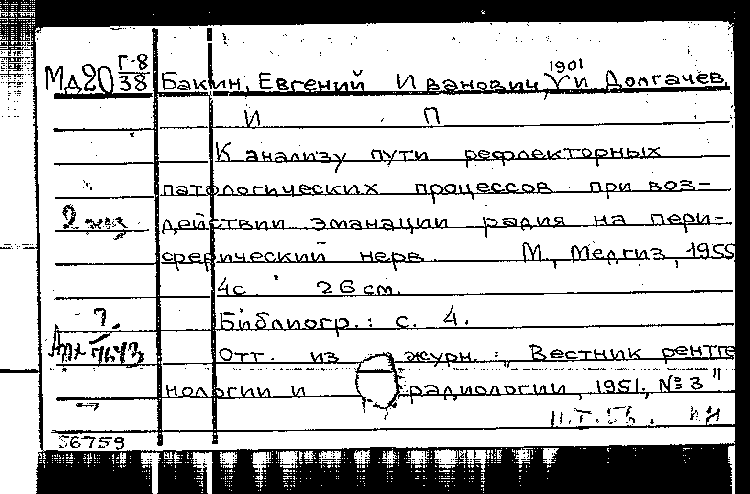 1901
МД20 Г-8/38 Бакин, Евгений Иванович, и Долгачев,
И П
К анализу пути рефлекторных
патологических процессов при воз-
2 экз действии эманации радия на пери-
ферический нерв М., Медгиз, 1955
4с 26 см.
Библиогр.: с. 4.
Отт. из журн.: „Вестник рентге
нологии и радиологии, 1951, № 3"
56759